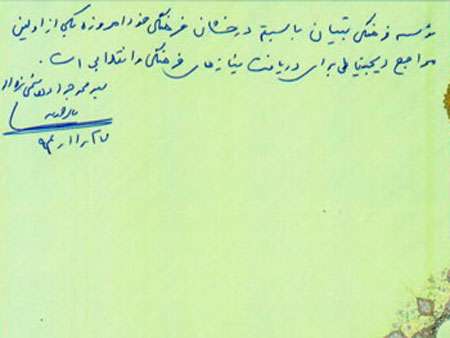 مؤسسه فرهنگی تبیان با سبقه درخشان فرهنگی خود امروزه یکی از اولین
مراجع دیجیتالی برای دریافت نیازهای فرهنگی و انقلابی است.
سید محمد جواد هاشمی نژاد
۹۴/۱۱/۲۷